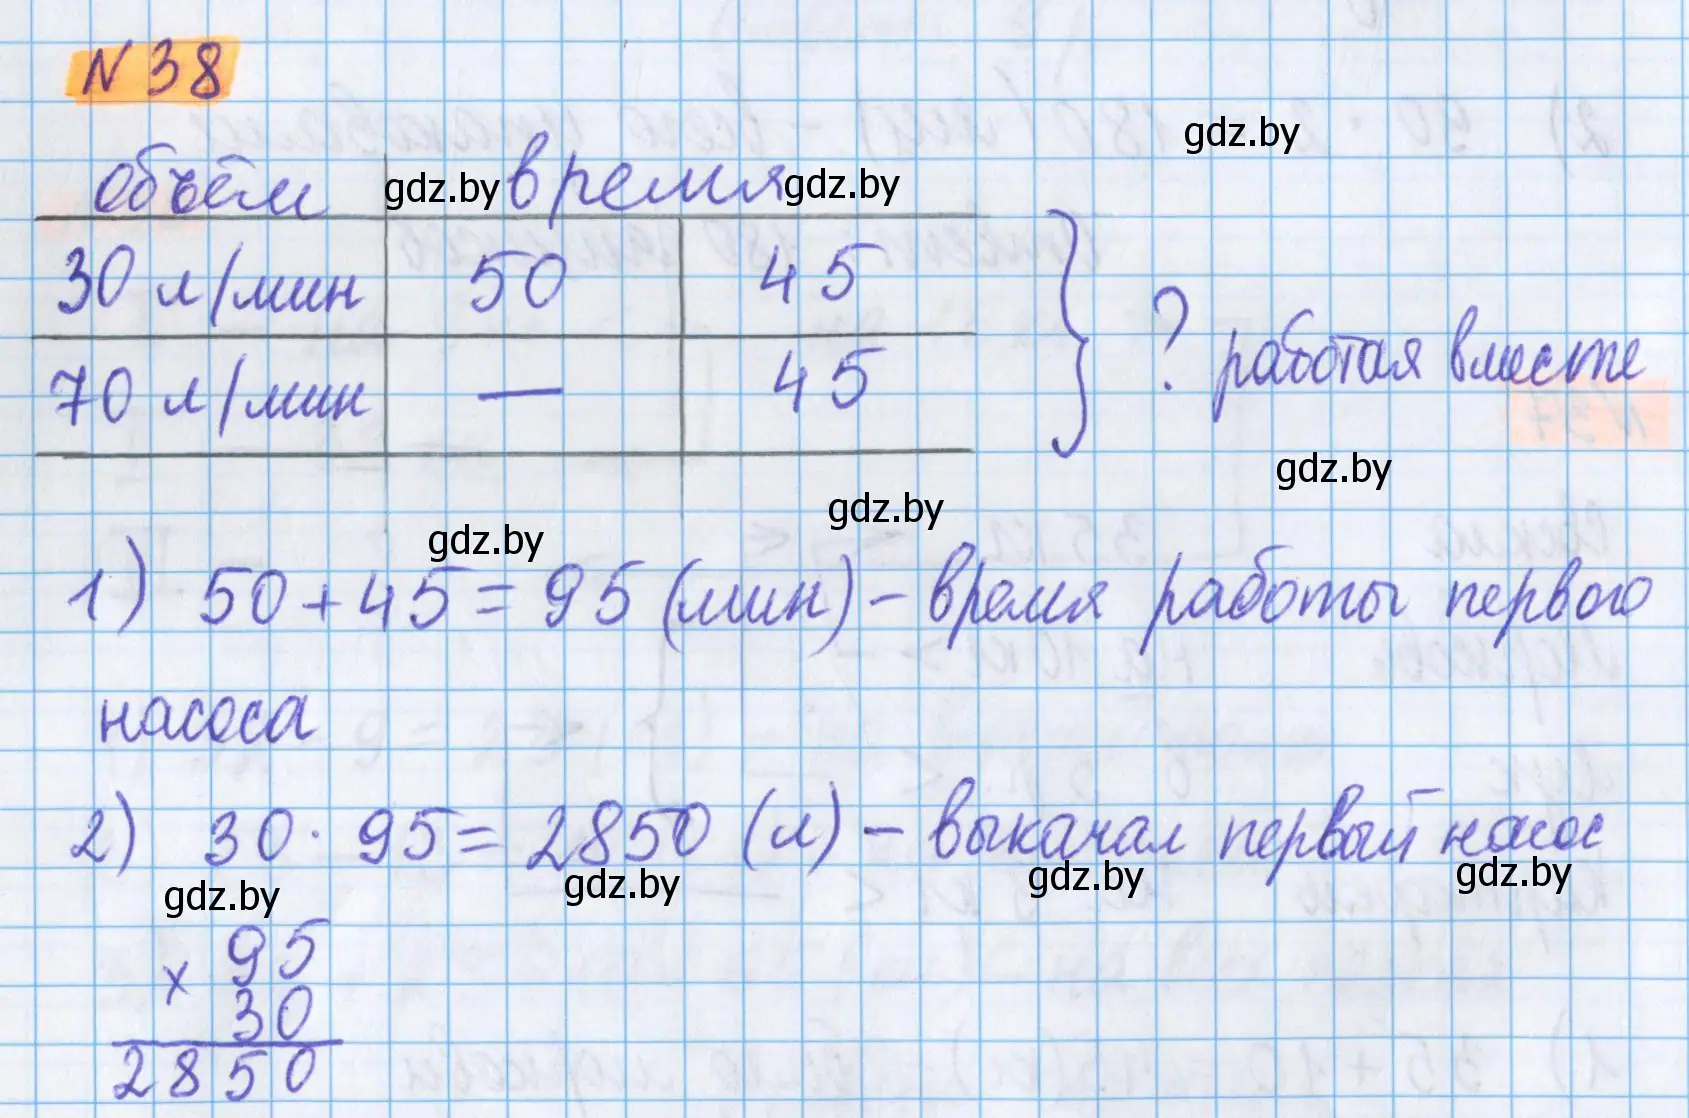 N 38
gdz.by
объём gdz.by время gdz.by
30 л/мин 50 45
? работая вместе
70 л/мин — 45
gdz.by
gdz.by
gdz.by
1) 50 + 45 = 95 (мин) – время работы первого
насоса
2) 30 · 95 = 2850 (л) – выкачал первый насос
gdz.by gdz.by gdz.by gdz.by
× 95
30
2850